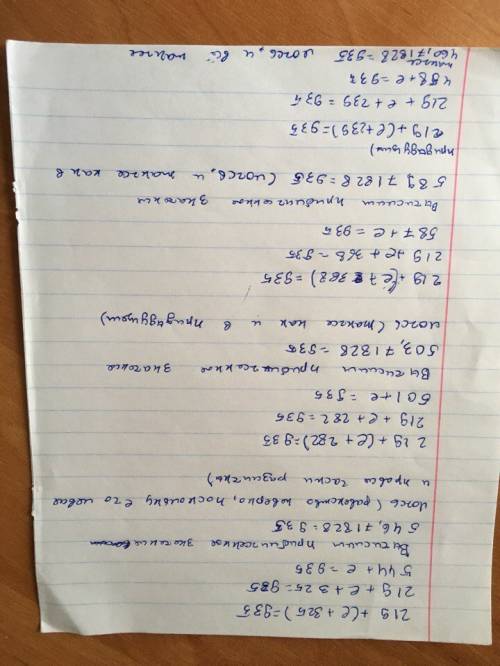 219 + (e + 325) = 935
219 + e + 325 = 935
544 + e = 935
Вычислим приближенное значение
546,71828 = 935
ложь (равенство неверно, поскольку его левая
и правая части различны)
219 + (e + 282) = 935
219 + e + 282 = 935
501 + e = 935
Вычислим приближенное значение
503,71828 = 935
ложь (также как и в предыдущем)
219 + (e + 368) = 935
219 + e + 368 = 935
587 + e = 935
Вычислим приближенное значение
589,71828 = 935 (ложь, и также как в
предыдущем)
219 + (e + 239) = 935
219 + e + 239 = 935
458 + e = 935
460,71828 = 935 ложь, и всё также